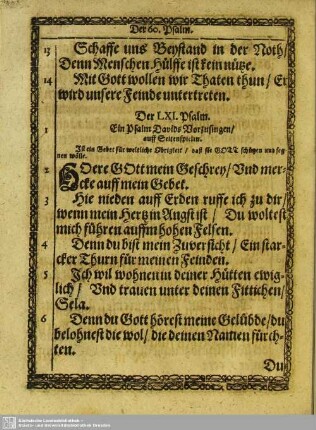 Der 60. Psalm.
13 Schaffe uns Beystand in der Noth/
Denn Menschen Hülffe ist kein nütze.
14 Mit Gott wollen wir Thaten thun/ Er
wird unsere Feinde untertreten.
Der LXI. Psalm.
1 Ein Psalm Davids Vorzusingen/
auff Seitenspielen.
Ist ein Gebet für weltliche Obrigkeit/ daß sie GOTT schützen und seg
nen wölle.
2 HOere GOtt mein Geschrey/ Vnd mer-
cke auff mein Gebet.
3 Hie nieden auff Erden ruffe ich zu dir/
wenn mein Hertz in Angst ist/ Du woltest
mich führen auff ein hohen Felsen.
4 Denn du bist mein Zuversicht/ Ein star-
cker Thurn für meinen Feinden.
5 Ich wil wohnen in deiner Hütten ewig-
lich/ Vnd trauen unter deinen Fittichen/
Sela.
6 Denn du Gott hörest meine Gelübde/ du
belohnest die wol/ die deinen Namen fürch-
ten.
Du
Sächsische Landesbibliothek -
Staats- und Universitätsbibliothek Dresden